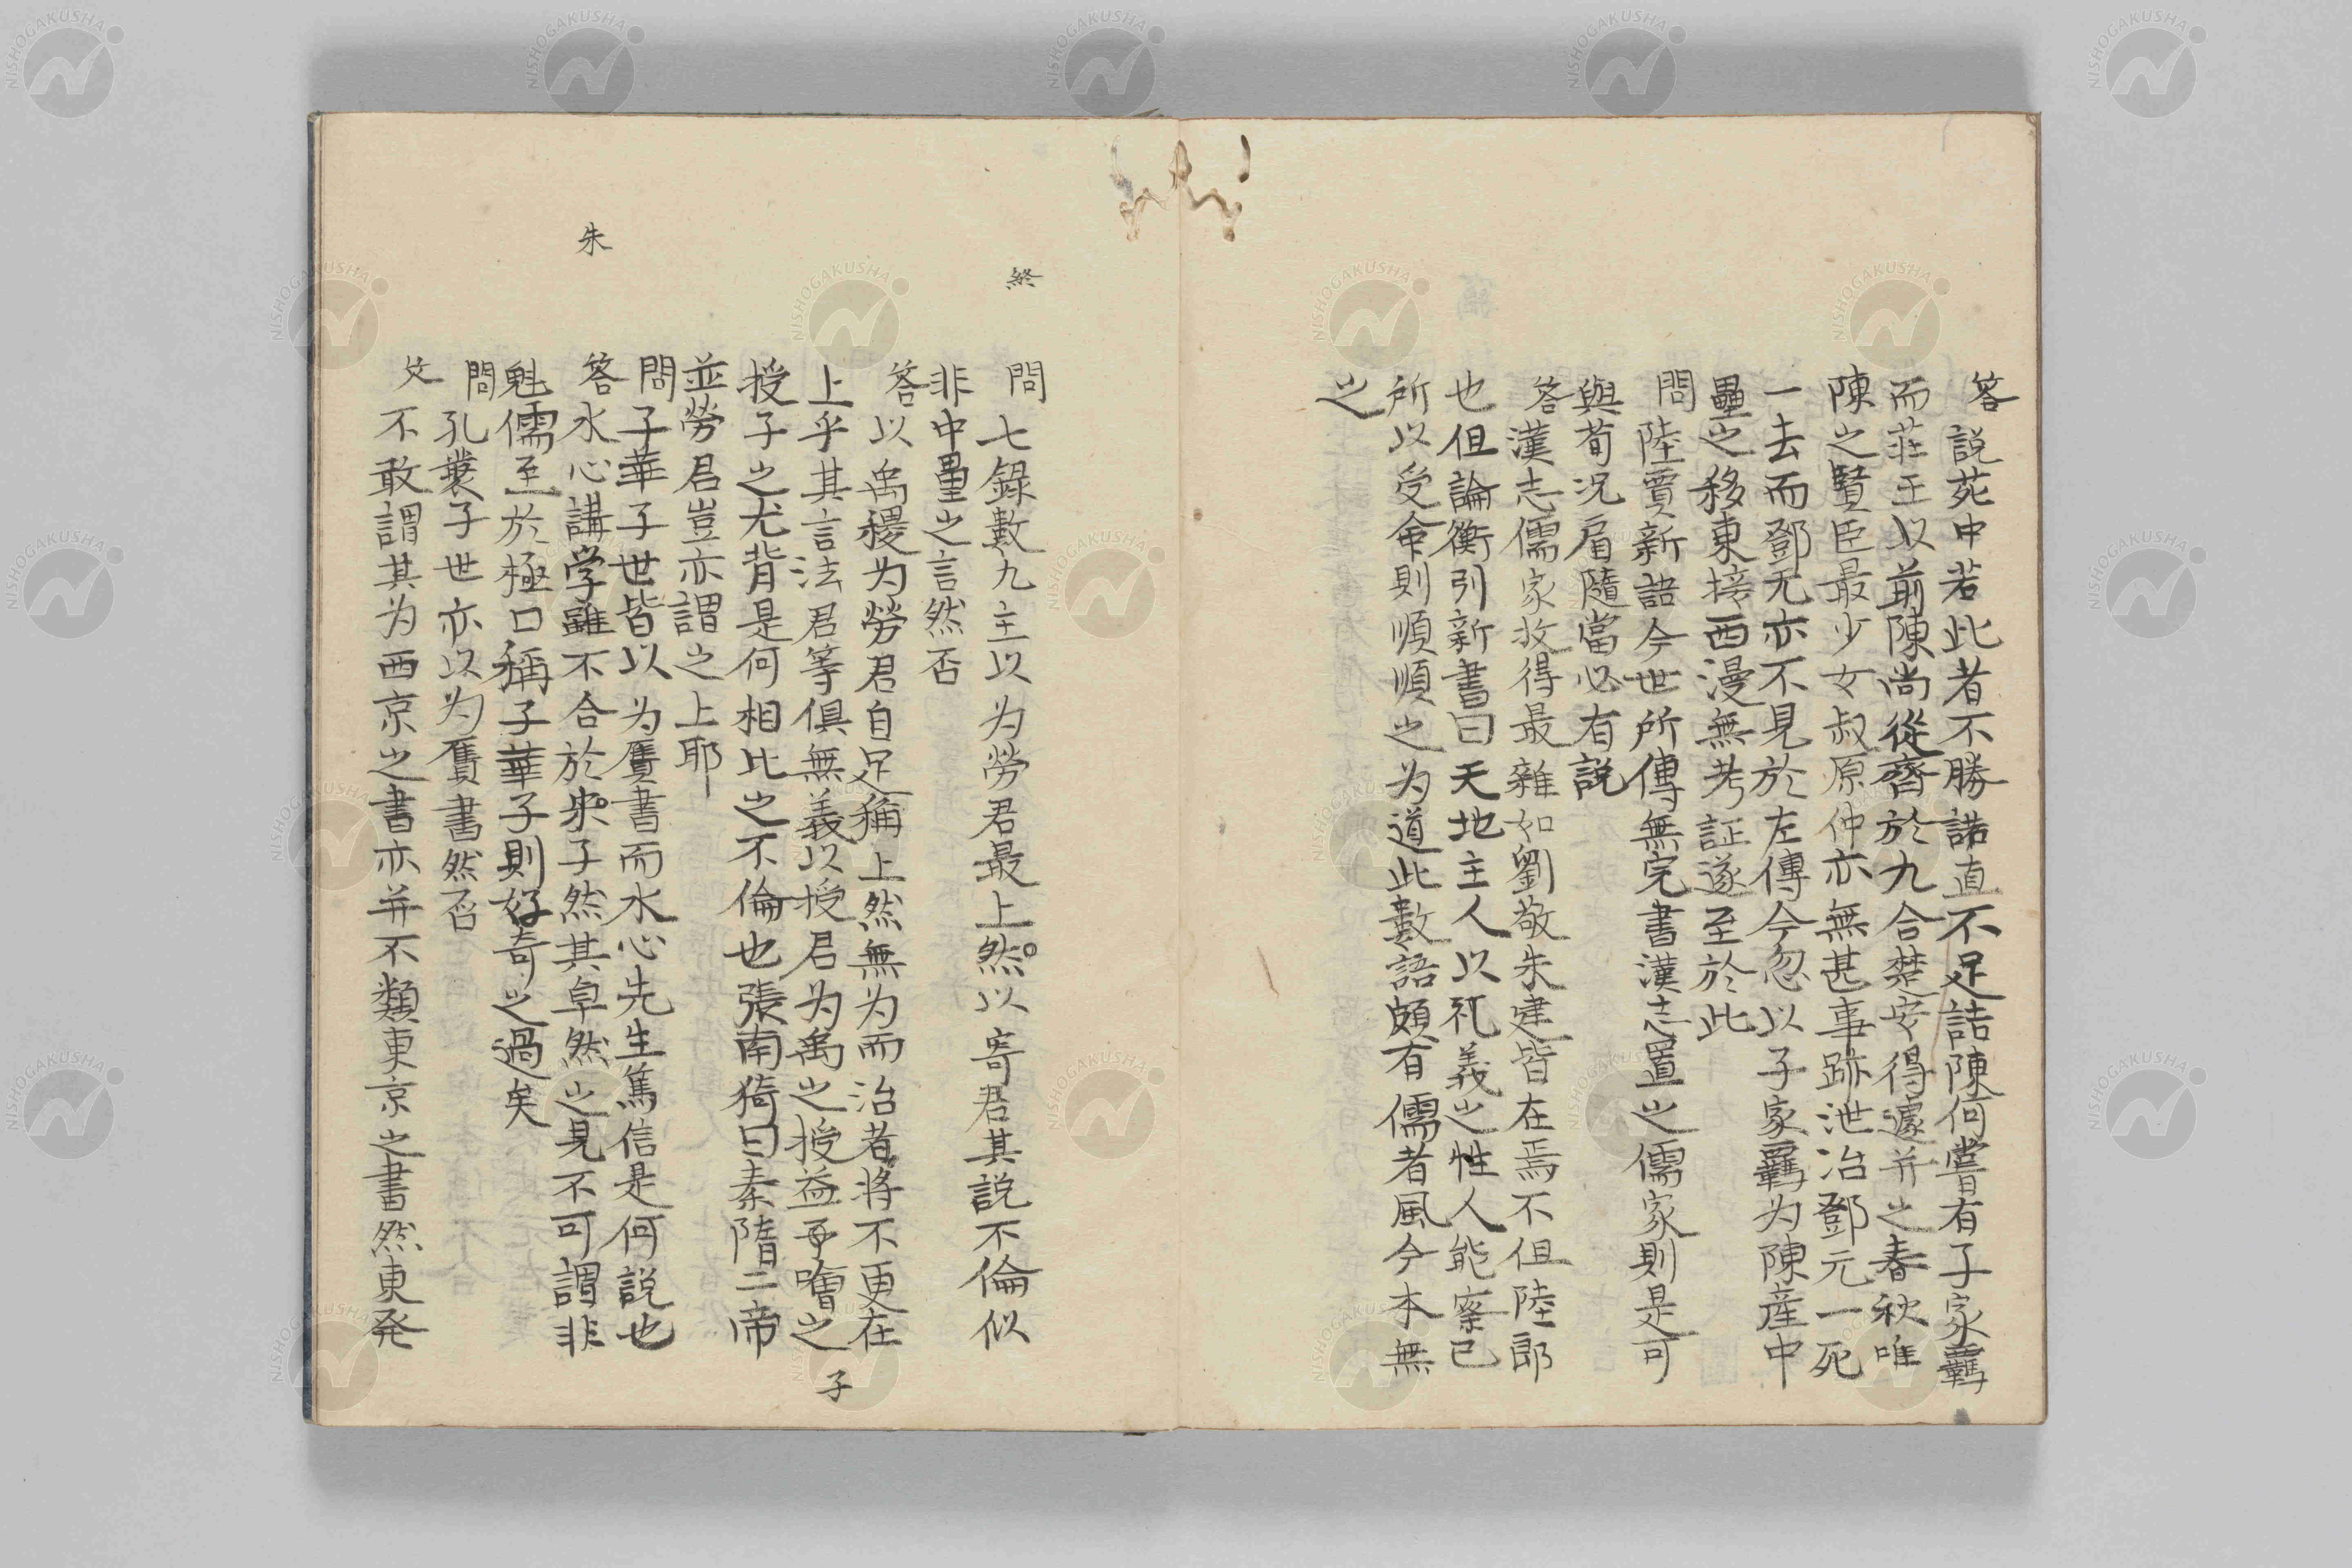 答說苑中若此者不勝詰直不足詰陳何嘗有子家羈
而莊王以前陳尚從齊於九合楚安得遽并之春秋唯
陳之賢臣最少女叔原仲亦無甚事跡泄冶鄧元一死
一去而鄧元亦不見於左傳今忽以子家羈为陳産中
壘之移東接西漫無考証遂至於此
問陸賈新語今世所傳無完書漢志置之儒家則是可
與荀況肩隨當必有説
答漢志儒家收得最雜如劉敬朱建皆在焉不但陸郎
也但論衡引新書曰天地主人以礼義之性人能察已
所以受命則順順之为道此數語頗有儒者風今本無
之
終
問七錄數九主以为勞君最上然以寄君其説不倫似
非中壘之言然否
答以禹稷为勞君自足稱上然無为而治者將不更在
上乎其言法君等俱無義以授君为禹之授益子噲之
子
授子之尤背是何相比之不倫也張南漪曰秦隋二帝
並勞君豈亦謂之上耶
問子華子世皆以为贋書而水心先生篤信是何説也
朱
答水心講学雖不合於宋子然其卓然之見不可謂非
魁儒至於極口稱子華子則好奇之過矣
問孔叢子世亦以为贋書然否
答不敢謂其为西京之書亦并不類東京之書然東発